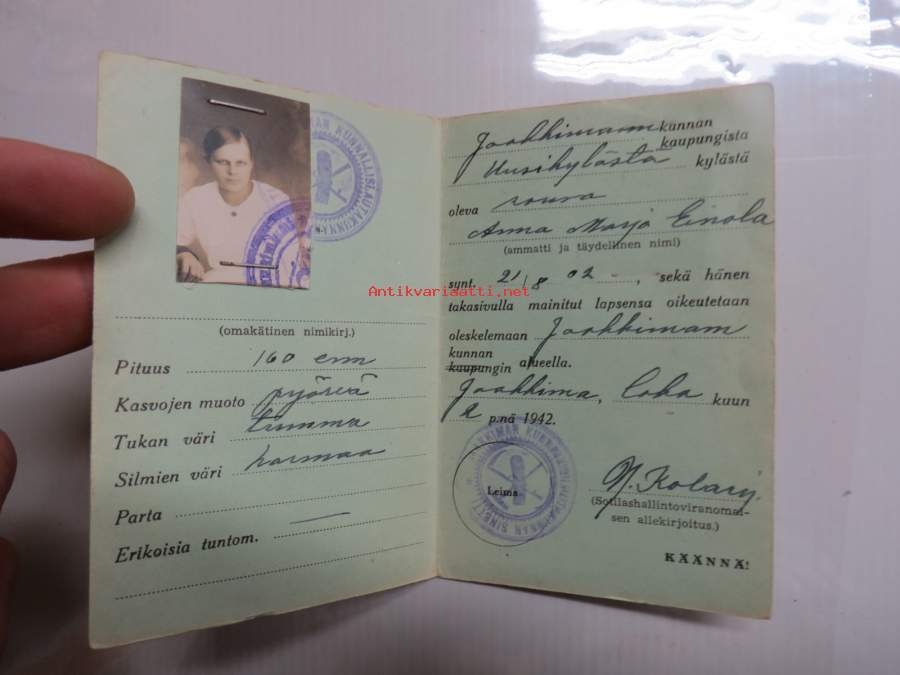 KUNNALLISLAUTAKUNNAN
(omakätinen nimikirj.)
Pituus 160 cm
Kasvojen muoto pyöreä
Tukan väri tumma
Silmien väri harmaa
Parta
Erikoisia tuntom. —
Jaakkiman kunnan
kaupungista
Uusikylästä kylästä
oleva rouva
Anna Marja Einola
(ammatti ja täydellinen nimi)
synt. 21/8 02 —, sekä hänen
takasivulla mainitut lapsensa oikeutetaan
oleskelemaan Jaakkiman
kunnan
kaupungin alueella.
Jaakkima, loka kuun
2 p:nä 1942.
Leima
JAAKKIMAN KUNNALLISLAUTAKUNNAN SINETTI
(Sotilashallintoviranomai-
sen allekirjoitus.)
KÄÄNNÄ!
Antikvariaatti.net